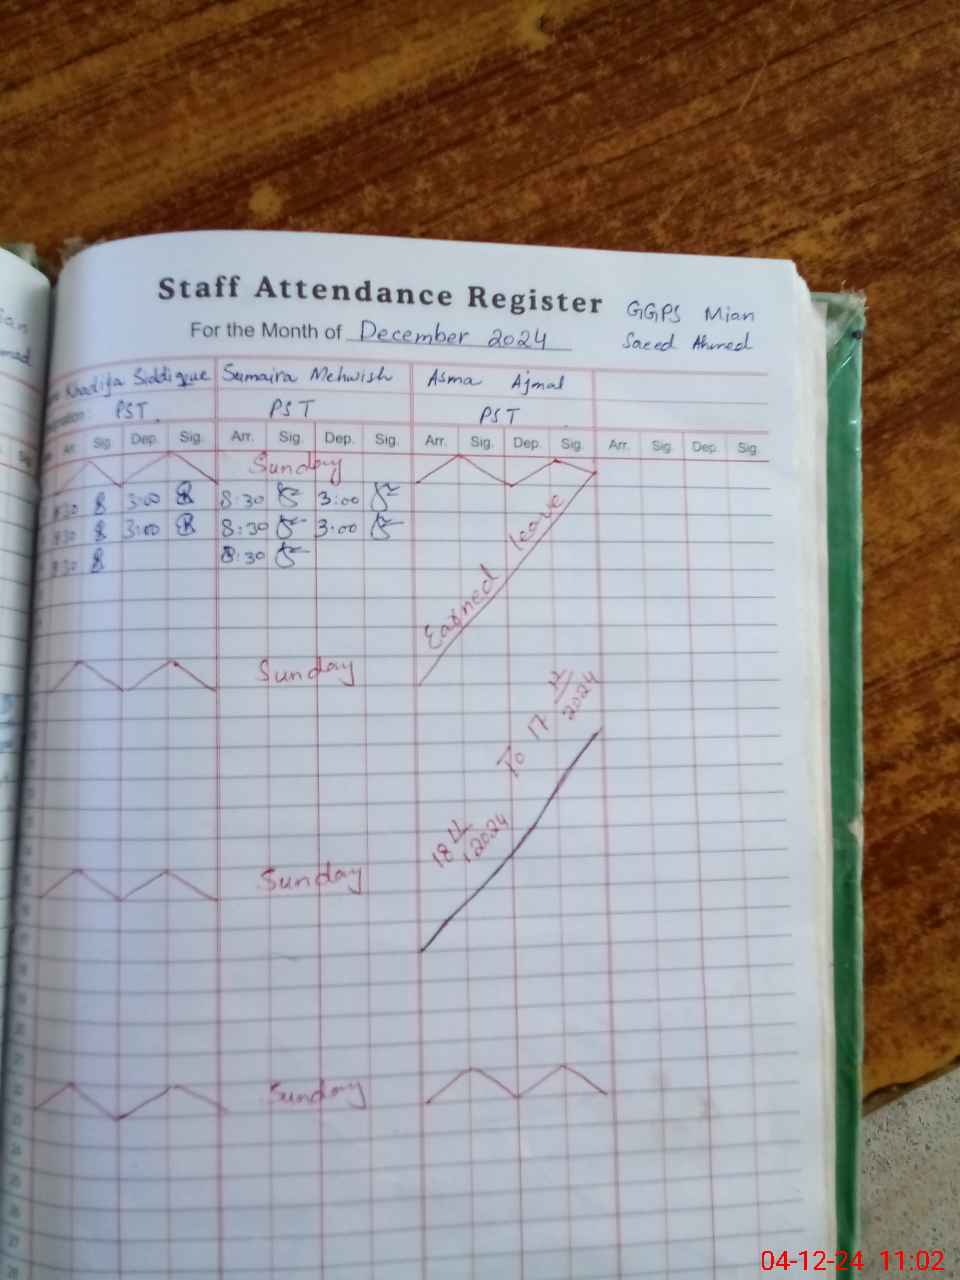 Staff Attendance Register
GGPS Mian
For the Month of December 2024
Saeed Ahmed
Khadija Siddique Sumaira Mehwish Asma Ajmal
PST PST PST
Arr. Sig. Dep. Sig. Arr. Sig. Dep. Sig. Arr. Sig. Dep. Sig. Arr. Sig. Dep. Sig.
Sunday
8:30 3:00 8:30 3:00
8:30 3:00 8:30 3:00
8:30 8:30
Earned leave
Sunday
18 11/2024 To 17 12/2024
Sunday
Sunday
22
23
24
25
26
27
28
04-12-24 11:02